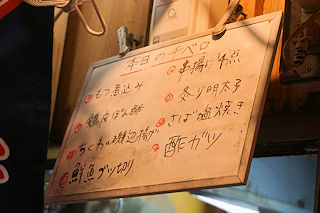 本日のチベロ
もつ煮込み
鶏皮ぽん酢
ちくわの磯辺揚げ
鮮魚ブツ切り
串揚げ4点
炙り明太子
さば塩焼き
酢ガツ